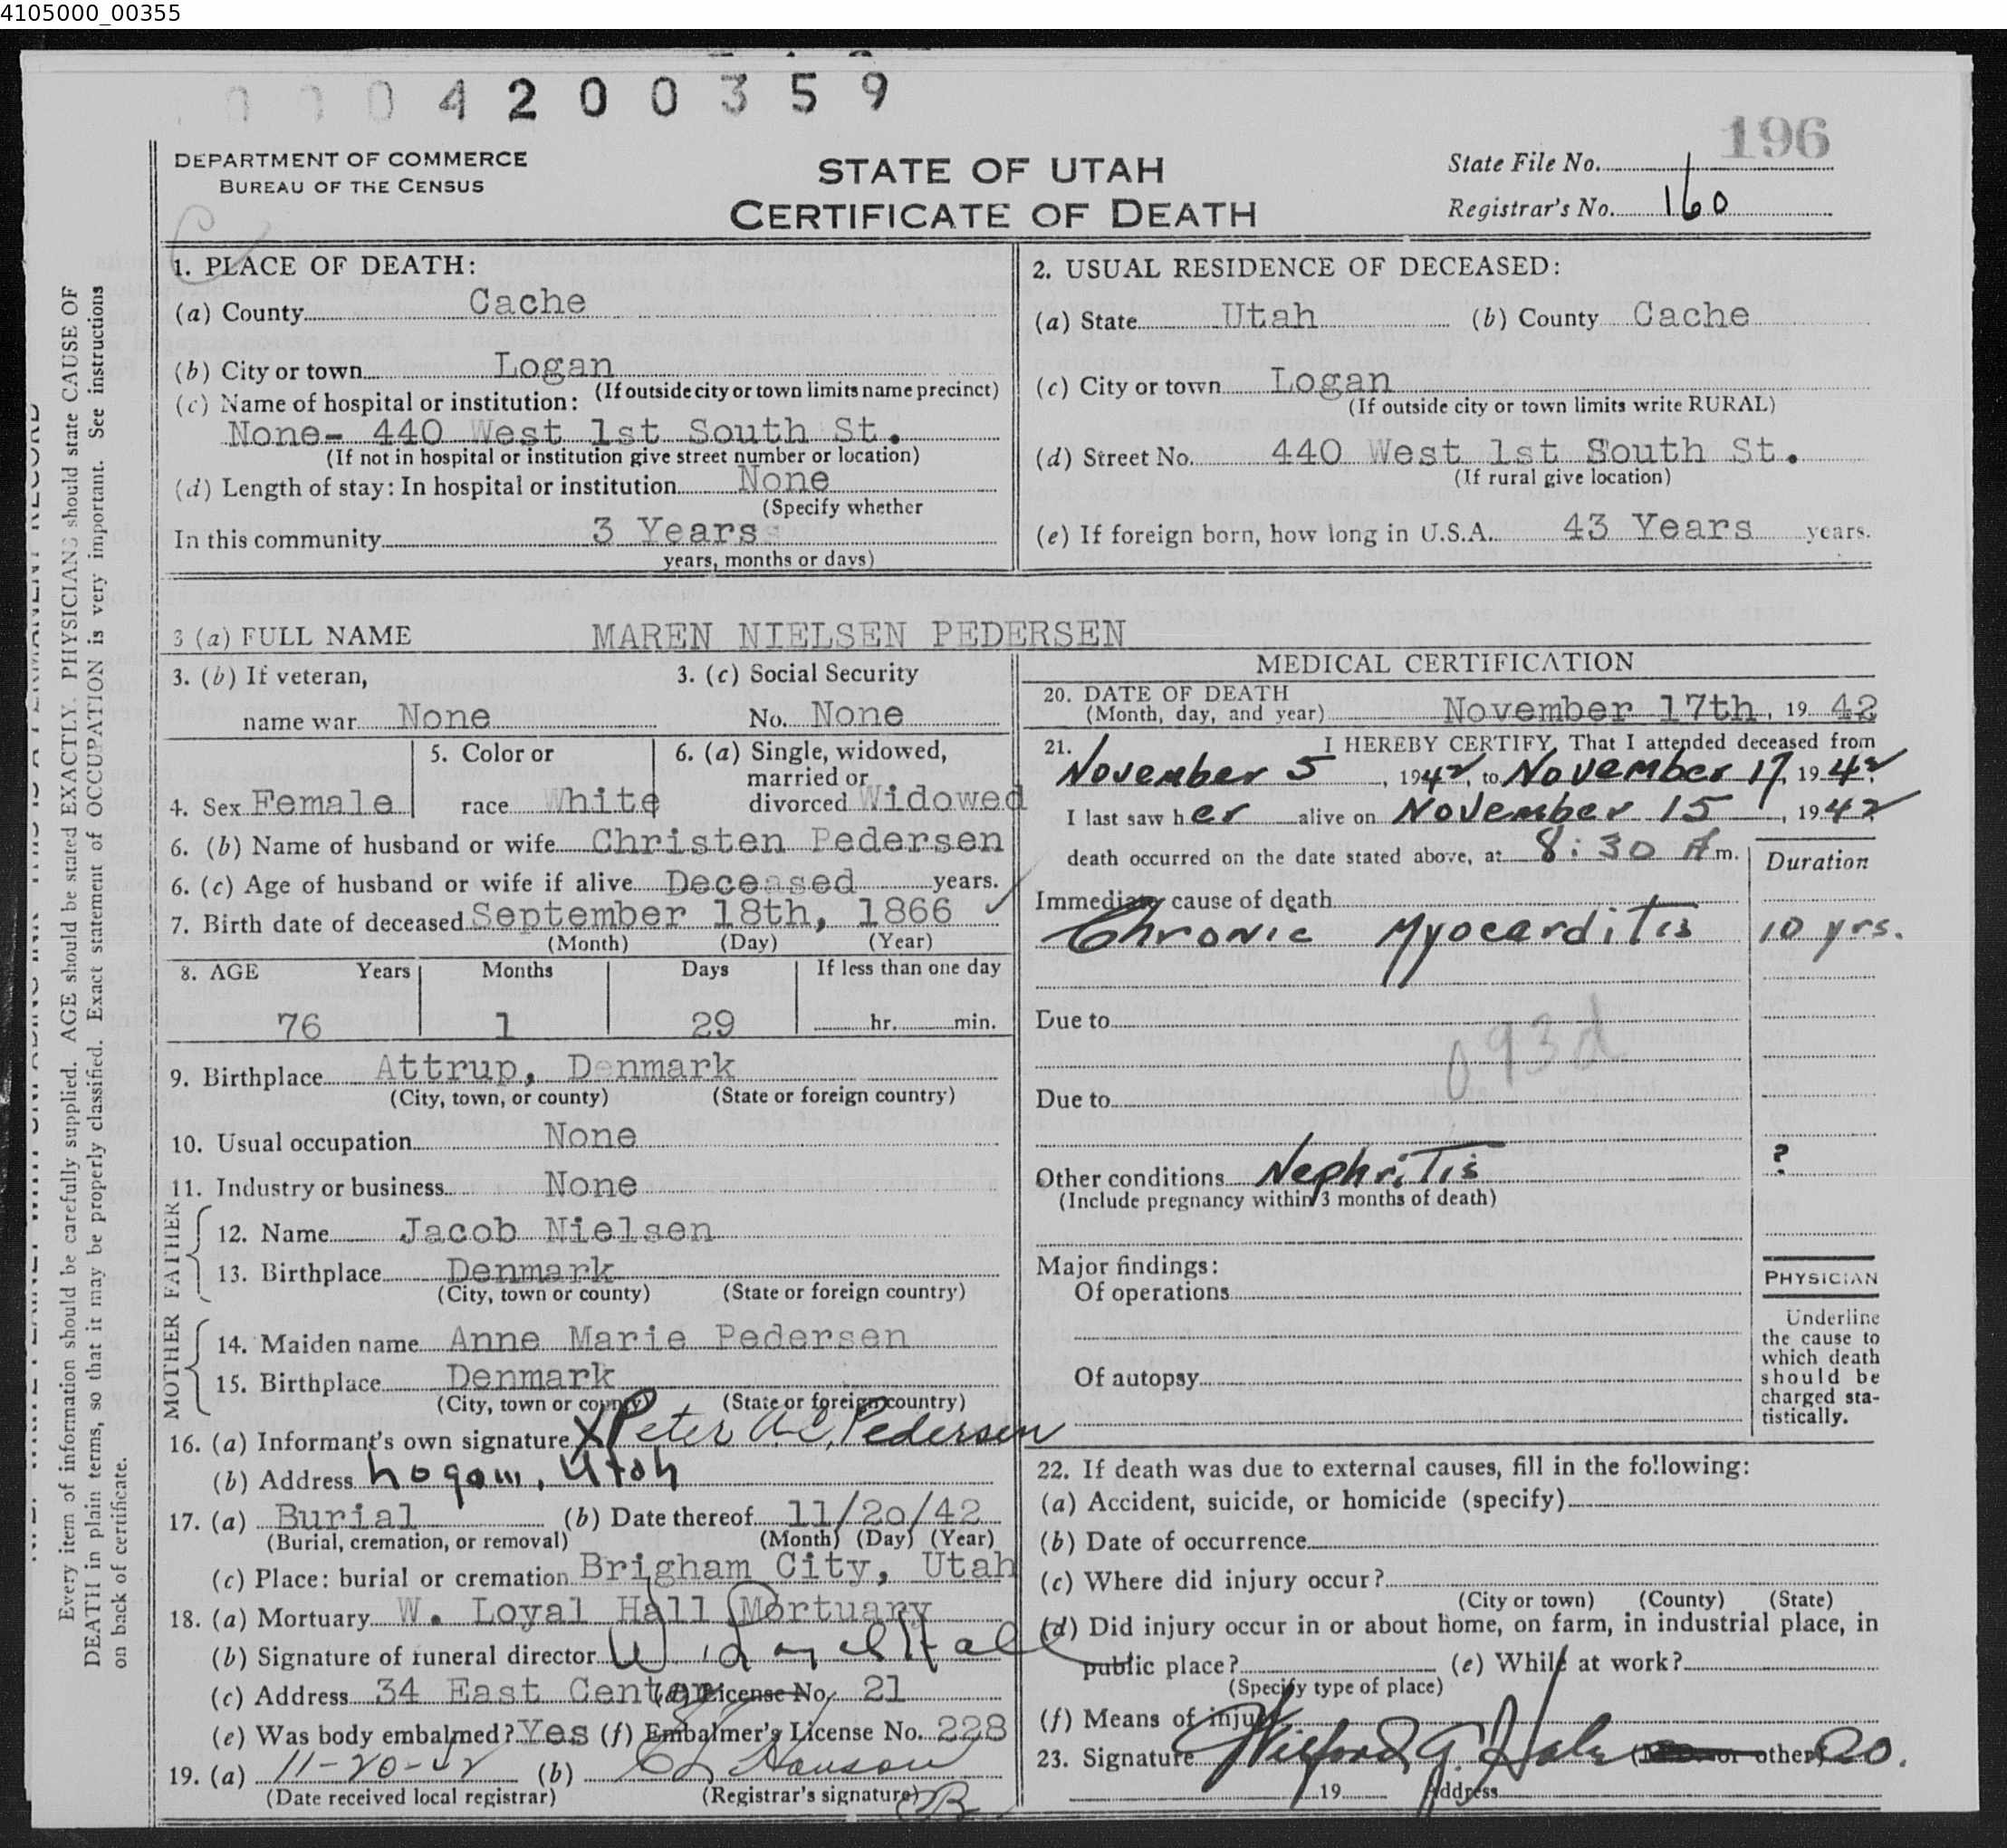 4105000_00355
0004200359
196
DEPARTMENT OF COMMERCE
BUREAU OF THE CENSUS
STATE OF UTAH
CERTIFICATE OF DEATH
State File No.
Registrar's No. 160
1. PLACE OF DEATH:
(a) County Cache
(b) City or town Logan
(If outside city or town limits name precinct)
(c) Name of hospital or institution:
None- 440 West 1st South St.
(If not in hospital or institution give street number or location)
(d) Length of stay: In hospital or institution None
(Specify whether
In this community 3 Years
years, months or days)
2. USUAL RESIDENCE OF DECEASED:
(a) State Utah (b) County Cache
(c) City or town Logan
(If outside city or town limits write RURAL)
(d) Street No. 440 West 1st South St.
(If rural give location)
(e) If foreign born, how long in U.S.A. 43 Years years.
3 (a) FULL NAME MAREN NIELSEN PEDERSEN
3. (b) If veteran,
name war None
3. (c) Social Security
No. None
4. Sex Female
5. Color or
race White
6. (a) Single, widowed,
married or
divorced Widowed
6. (b) Name of husband or wife Christen Pedersen
6. (c) Age of husband or wife if alive Deceased years.
7. Birth date of deceased September 18th, 1866
(Month) (Day) (Year)
8. AGE Years Months Days If less than one day
76 1 29 hr. min.
9. Birthplace Attrup, Denmark
(City, town, or county) (State or foreign country)
10. Usual occupation None
11. Industry or business None
FATHER
12. Name Jacob Nielsen
13. Birthplace Denmark
(City, town or county) (State or foreign country)
MOTHER
14. Maiden name Anne Marie Pedersen
15. Birthplace Denmark
(City, town or county) (State or foreign country)
16. (a) Informant's own signature X Peter A.C. Pedersen
(b) Address Logan, Utah
17. (a) Burial (b) Date thereof 11/20/42
(Burial, cremation, or removal) (Month) (Day) (Year)
(c) Place: burial or cremation Brigham City, Utah
18. (a) Mortuary W. Loyal Hall Mortuary
(b) Signature of funeral director W. Loyal Hall
(c) Address 34 East Center (d) License No. 21
(e) Was body embalmed? Yes (f) Embalmer's License No. 228
19. (a) 11-20-42 (b)
(Date received local registrar) (Registrar's signature)
MEDICAL CERTIFICATION
20. DATE OF DEATH
(Month, day, and year) November 17th, 19 42
21. I HEREBY CERTIFY, That I attended deceased from
November 5, 1942, to November 17, 1942
I last saw her alive on November 15, 1942
death occurred on the date stated above, at 8:30 A m.
Duration
Immediate cause of death
Chronic Myocarditis 10 yrs.
Due to
093d
Due to
Other conditions Nephritis ?
(Include pregnancy within 3 months of death)
Major findings:
Of operations
Of autopsy
PHYSICIAN
Underline
the cause to
which death
should be
charged sta-
tistically.
22. If death was due to external causes, fill in the following:
(a) Accident, suicide, or homicide (specify)
(b) Date of occurrence
(c) Where did injury occur?
(City or town) (County) (State)
(d) Did injury occur in or about home, on farm, in industrial place, in
public place? (e) While at work?
(Specify type of place)
(f) Means of injury
23. Signature Wilford G. Hale (M.D. or other)
19 Address
Every item of information should be carefully supplied. AGE should be stated EXACTLY. PHYSICIANS should state CAUSE OF
DEATH in plain terms, so that it may be properly classified. Exact statement of OCCUPATION is very important. See instructions
on back of certificate.